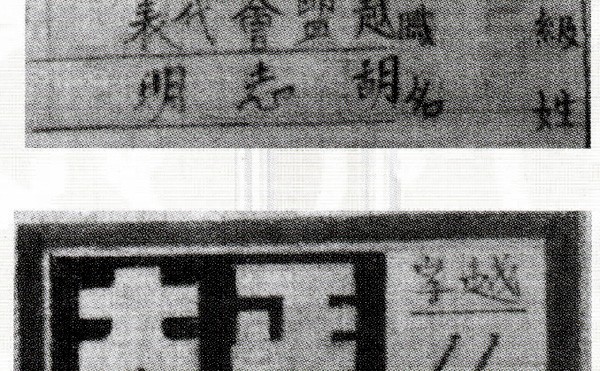 級職越盟會代表
姓名胡志明
越字